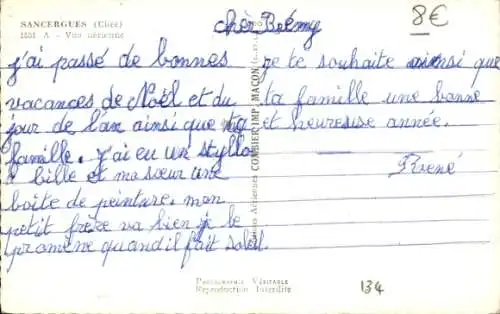 SANCERGUES (Cher)
1551 A - Vue aérienne
8€
chèr Rémy
j'ai passé de bonnes
vacances de Noël et du
jour de l'an ainsi que ta
famille. J'ai eu un styllo
à bille et ma sœur une
boîte de peinture. mon
petit frère va bien je le
promène quand il fait soleil.
je te souhaite ainsi que
ta famille une bonne
et heureuse année.
René
Aériennes COMBIER IMP. MACON
PHOTOGRAPHIE VÉRITABLE
Reproduction Interdite
134